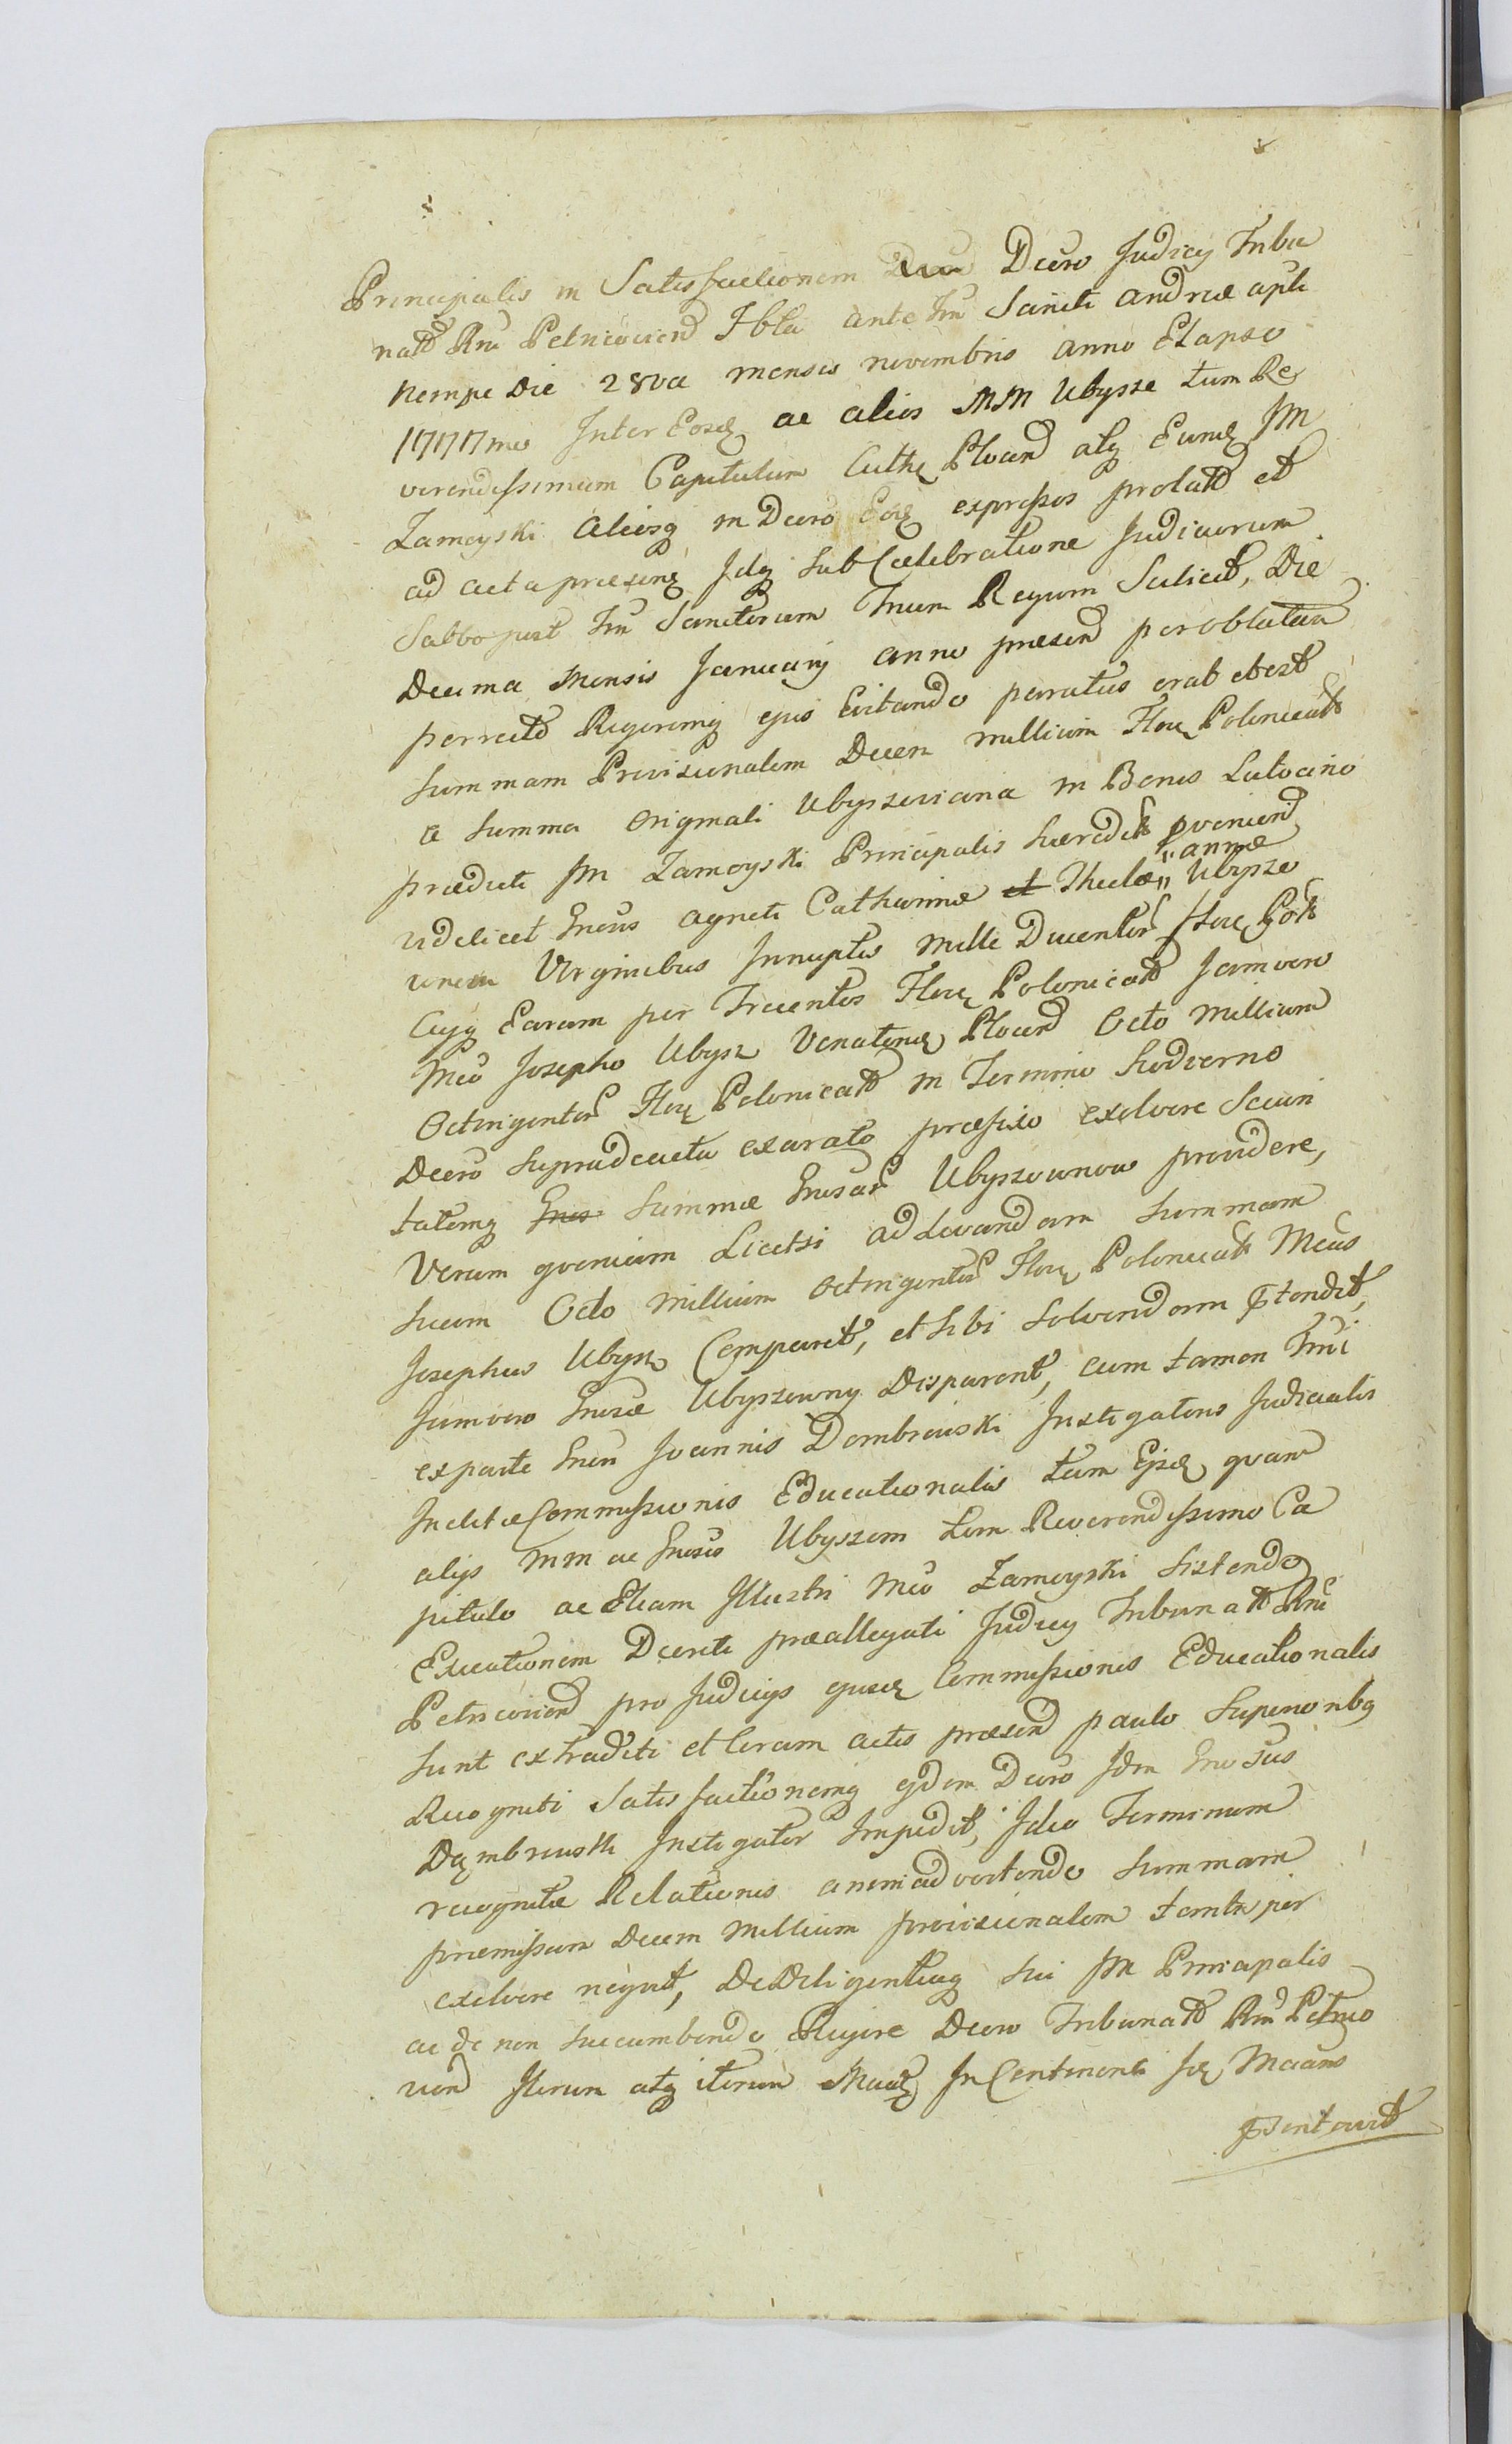 Principalis in Satisfactionem Decro Judicij Tribu
natt Rni Petricovien Ibla ante fm Sancti andreæ apli
Nempe Die 28va mensis novembris anno Elapso
1777mo Inter Eosd ac alios MM Ubysze tum Re
verendissimum Capitulum Cuthe Plocen atq Eund JM
Zamoyski aliosq in Decro Eod expressos prolatt et
ad acta præsens Idq sub Cælebratione Judiciorum
Sabbo post fm Sanctorum Trium Regum Scilicet, Die
Decima Mensis Januarij anno præsen per oblatam
porrectt Rigoremq ejus Evitando paratus erat et est
summam Provisionalem Decem millium Flor Polonicalt
a summa originali Ubyszoviana in Bonis Lutocino
prædicti JM Zamoyski Principalis hæredit provenien
videlicet Gnosis Agneti Catharinæ et Theclæ " annæ " Ubysze
Virginibus Innuptis mille Ducentor flor Polt
Cuiq Earum per Trecentos Flor Polonicatt Jam vero
Mco Josepho Ubysz Venatori Plocen Octo Millium
Octingentor Flor Polonicatt in Termino hodierno
Decro supradicto exarato præfixo exolvere Securi
tatemq Gnos summæ Gnosar Ubyszownow providere,
Verum quoniam Licetsi ad Levandam summam
suam Octo millium octingentor Flor Polonicalt Mcus
Josephus Ubysz Comparet, et sibi solvendam ptendit,
Jam vero Gnosæ Ubyszowny Disparent, cum tamen Tmi
ex parte Gnosi Joannis Dombrowski Instigatoris Judicialis
Inclitæ Commissionis Educationalis tum Ejsd quam
alijs MM ac Gnosis Ubyszom tum Reverendissimo Ca
pitulo ac Etiam Illustri Mco Zamoyski sistendo
Executionem Decreti præallegati Judicij Tribunatt Rni
Petricovien pro Judicijs ejusd Commissionis Educationalis
sunt extraditi et Coram actis præsen paulo superioribq
Recogniti Satisfactionemq ejdem Decro Idm Gnosus
Dąmbrowski Instigator Impedit, Ideo Terminum
recognitæ Relationis animadvertendo summam
præmissam Decem Millium provisionalem tantisper
exolvere nequit, De Diligentiaq sui JM Principalis
ac de non succumbendo Rigore Decro Tribunatt Rni Petrico
vien Iterum atq iterum In Continenti
ptentavit